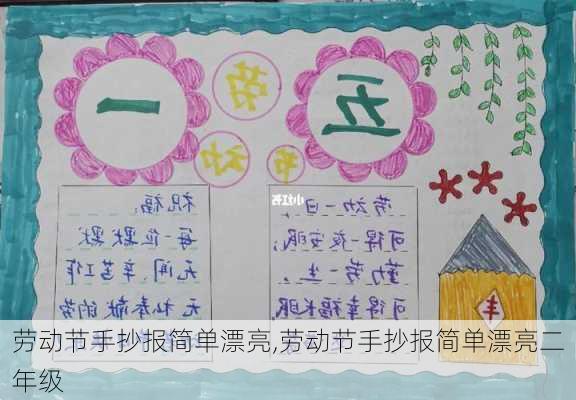 五一
劳
动
节
小红书
劳动一日,
可得一夜安眠;
勤劳一生,
可得幸福长眠
祝福:
每一位默默
无闻、辛苦工作
无私奉献的劳
丰
劳动节手抄报简单漂亮,劳动节手抄报简单漂亮二
年级